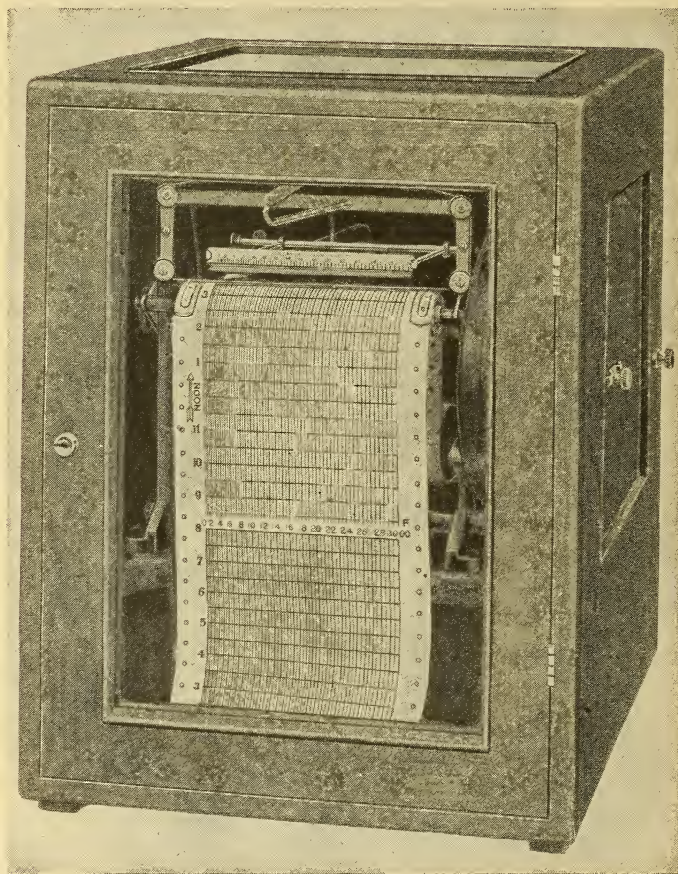 3
2
1
NOON
11
10
9
8
0 2 4 6 8 10 12 14 16 18 20 22 24 26 28 30 00
F
7
6
5
4
3